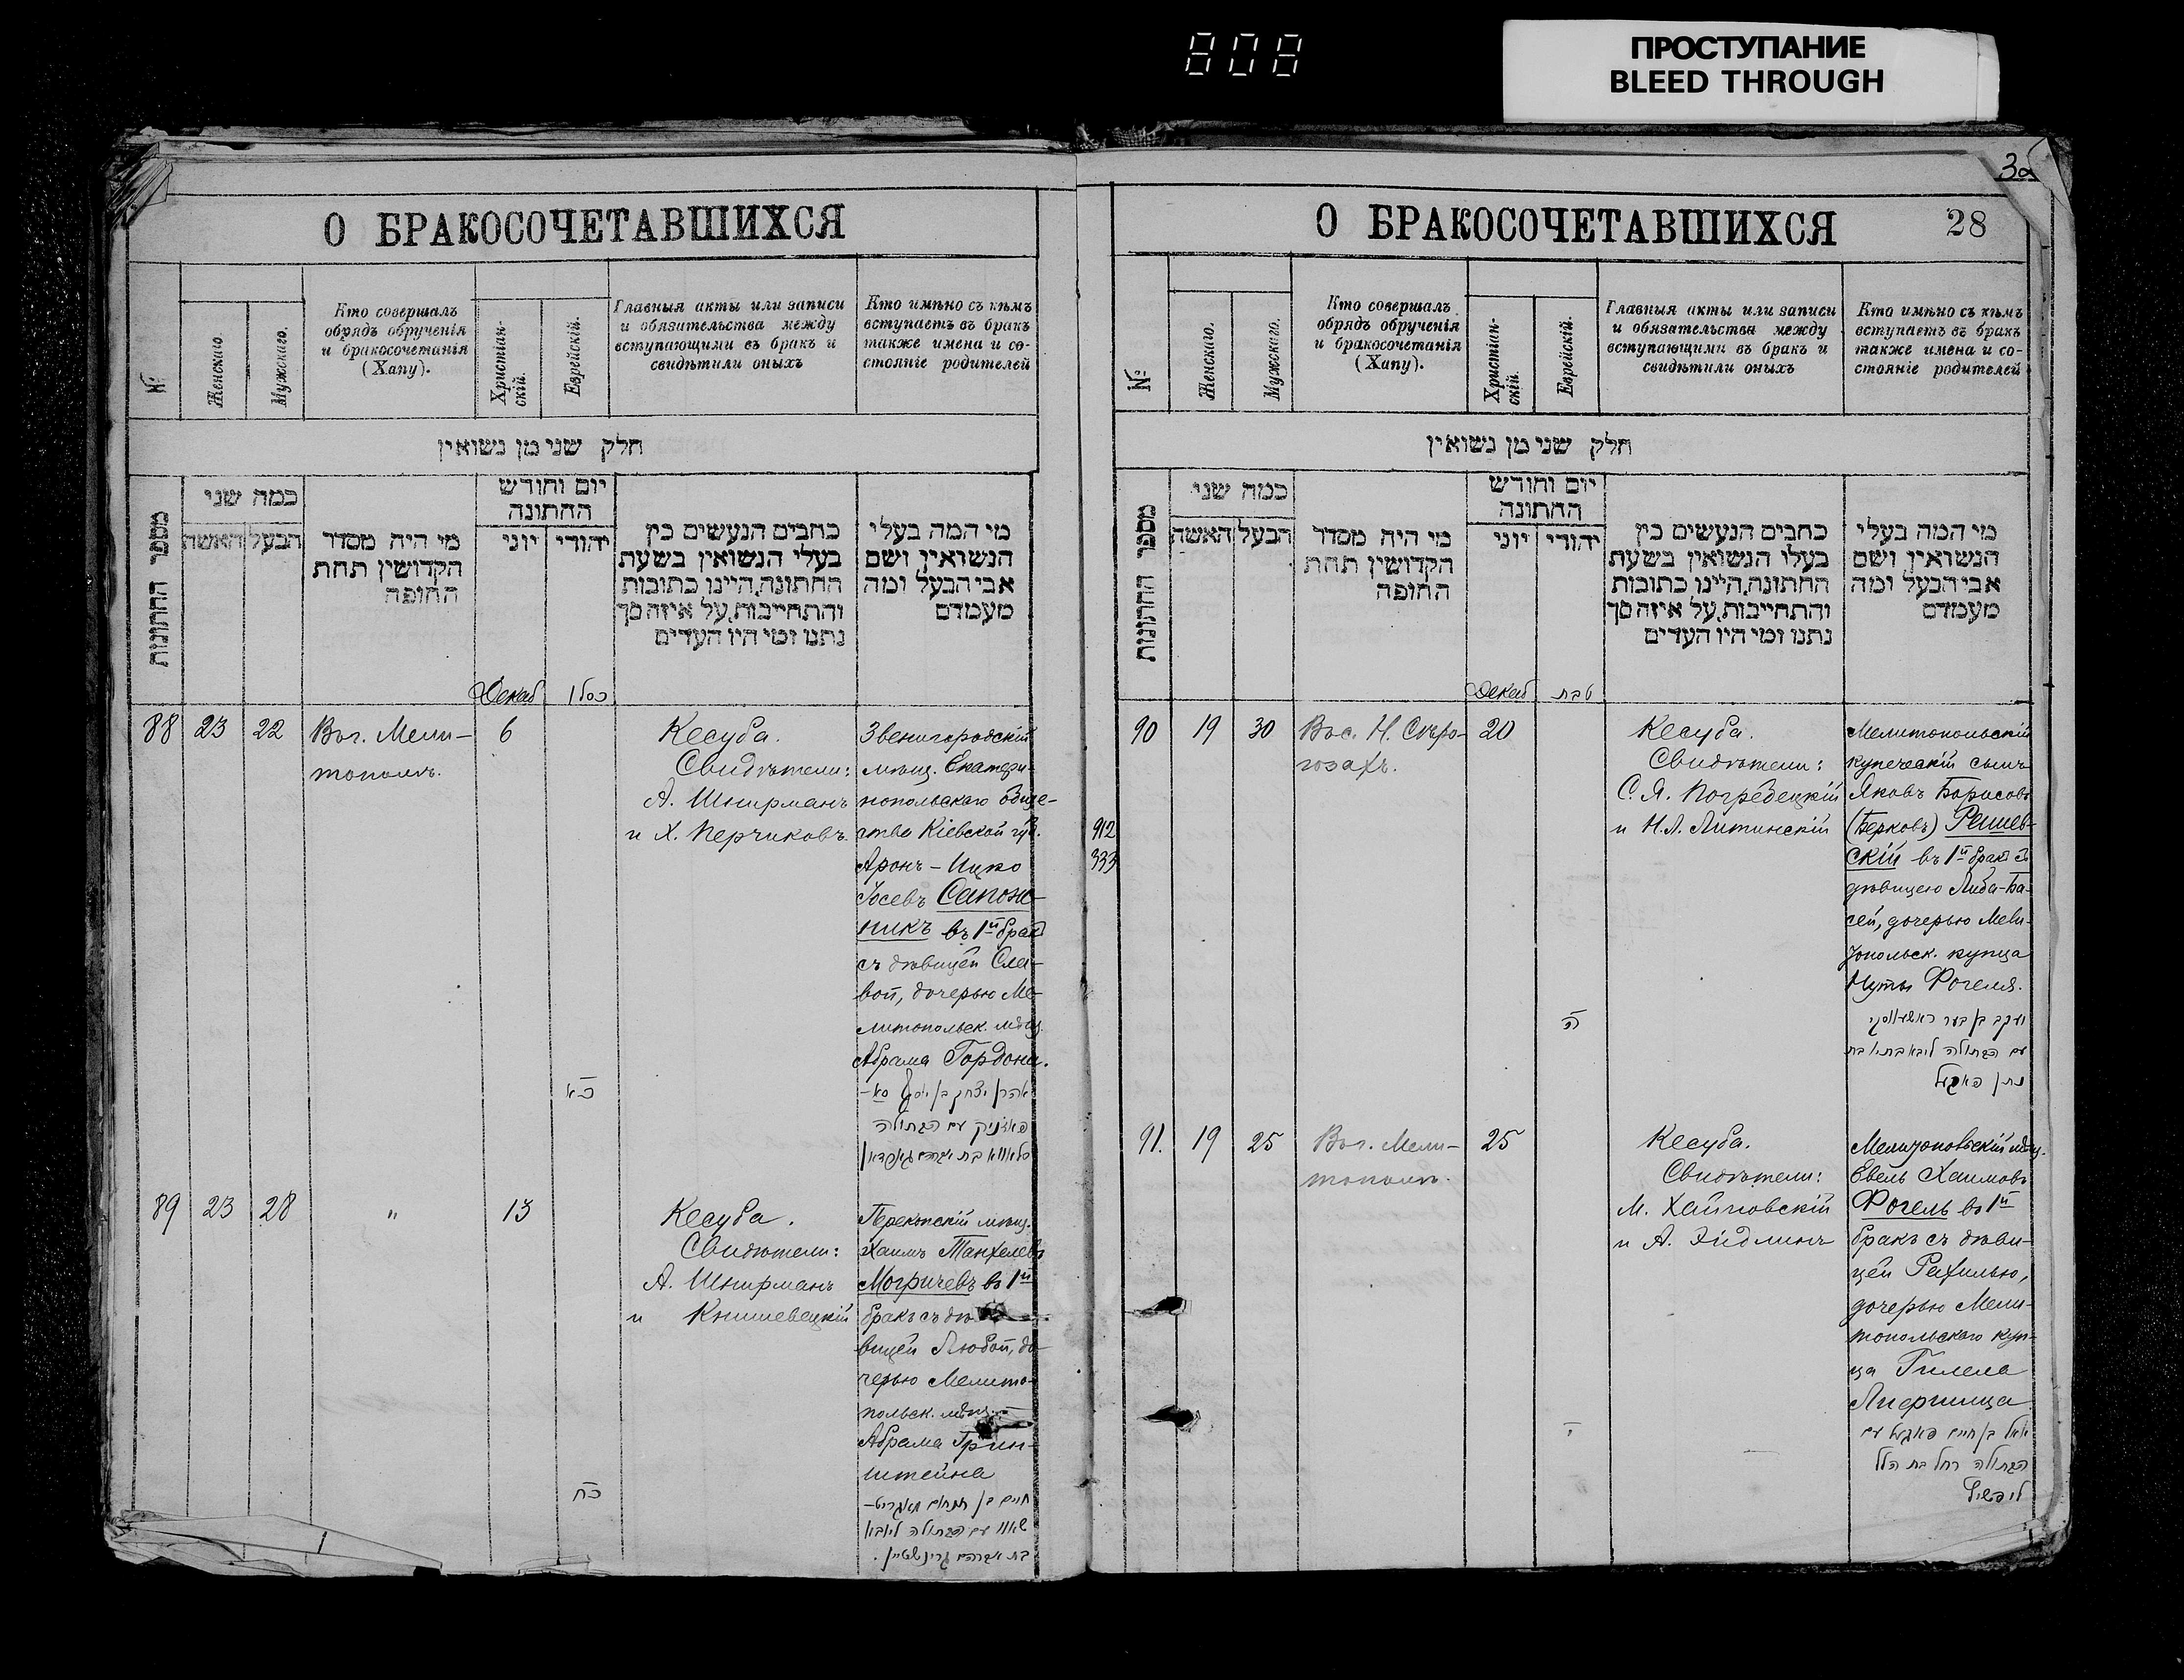 808
ПРОСТУПАНИЕ
BLEED THROUGH
О БРАКОСОЧЕТАВШИХСЯ
№
Женскаго.
Мужскаго.
Кто совершалъ
обрядъ обрученія
и бракосочетанія
(Хапу).
Христіан-
скій.
Еврейскій.
Главныя акты или записи
и обязательства между
вступающими въ бракъ и
свидѣтили оныхъ
Кто имѣно съ кѣмъ
вступаетъ въ бракъ
также имена и со-
стояніе родителей
חלק שני מן נשואין
מספר החתונות
כמה שני
האשה
הבעל
מי היה מסדר
הקדושין תחת
החופה
יום וחודש
החתונה
יוני
יהודי
כתבים הנעשים בין
בעלי הנשואין בשעת
החתונה,היינו כתובות
והתחייבות,על איזה סך
נתנו ומי היו העדים
מי המה בעלי
הנשואין ושם
אבי הבעל ומה
מעמדם
Декаб
כסלו
88
23
22
Вог. Мели-
тополѣ.
6
Кесуба.
Свидѣтели:
А. Шнирманъ
и Х. Перчиковъ.
Звенигородскій
мѣщ. Екатери-
нопольскаго обще-
ства Кіевской губ.
Аронъ-Ицко
Іосевъ Сапож-
никъ въ 1й бракъ
съ дѣвицей Сла-
вой, дочерью Ме-
литопольск. мѣщ.
Абрама Гордона.
כא
אהרן יצחק בן יוסף סא-
פאזניק עם הבתולה
סלאווא בת אברהם גארדאן
89
23
28
"
13
Кесуба.
Свидѣтели:
А. Шнирманъ
и Книшевецкій
Перекопскій мѣщ.
Хаимъ Танхелевъ
Могричевъ въ 1й
бракъ съ дѣ
вицей Любой, до-
черью Мелито-
польск. мѣщ.
Абрама Грин-
штейна
כח
חיים בן תנחום מאגריט-
שאוו עם הבתולה ליובא
בת אברהם גרינשטיין.
О БРАКОСОЧЕТАВШИХСЯ
28
№
Женскаго.
Мужскаго.
Кто совершалъ
обрядъ обрученія
и бракосочетанія
(Хапу).
Христіан-
скій.
Еврейскій.
Главныя акты или записи
и обязательства между
вступающими въ бракъ и
свидѣтили оныхъ
Кто имѣно съ кѣмъ
вступаетъ въ бракъ
также имена и со-
стояніе родителей
חלק שני מן נשואין
מספר החתונות
כמה שני
האשה
הבעל
מי היה מסדר
הקדושין תחת
החופה
יום וחודש
החתונה
יוני
יהודי
כתבים הנעשים בין
בעלי הנשואין בשעת
החתונה,היינו כתובות
והתחייבות,על איזה סך
נתנו ומי היו העדים
מי המה בעלי
הנשואין ושם
אבי הבעל ומה
מעמדם
Декаб
טבת
912
333
90
19
30
Вос. Н. Сѣро-
гозахъ.
20
Кесуба.
Свидѣтели:
С. Я. Погребецкій
и Н. Л. Литинскій
Мелитопольскій
купеческій сынъ
Яковъ Борисовъ
(Берковъ) Решев-
скій въ 1й бракъ съ
дѣвицею Либа-Ба-
сей, дочерью Мели-
топольск. купца
Нуты Фогеля.
ה
יעקב בן בער ראשעווסקי
עם הבתולה ליבא בתיא בת
נתן פאגעל
91.
19
25
Вог. Мели-
тополѣ.
25
Кесуба.
Свидѣтели:
М. Хайновскій
и А. Эйдлинъ
Мелитопольскій мѣщ.
Евель Хаимовъ
Фогель въ 1й
бракъ съ дѣви-
цей Рахилью,
дочерью Мели-
топольскаго куп-
ца Гилеля
Лифшица
י
חיים פאגעל עם
הבתולה רחל בת הלל
ליפשיץ